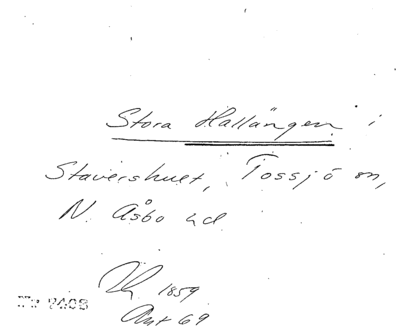 Stora Hallängen i
Stavershult, Tossjö sn,
N. Åsbo hd
1859
Ant 69